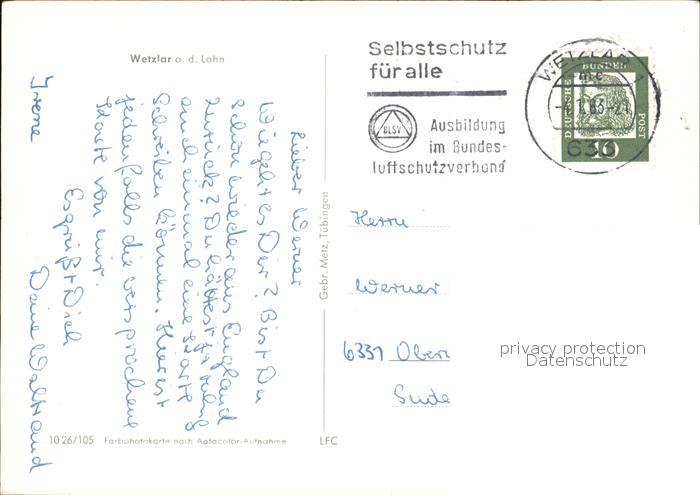 Wetzlar a. d. Lahn
Selbstschutz
für alle
BLSV
Ausbildung
im Bundes-
luftschutzverband
WETZLAR
636
DEUTSCHE
BUNDES
POST
10
Lieber Werner
Wie geht es Dir? Bist Du
schon wieder aus England
zurück? Du hättest ja ruhig
auch einmal eine Karte
schreiben können. Hier ist
jedenfalls die versprochene
Karte von mir.
Es grüßt Dich
Deine Waltraud
Irene
Gebr. Metz, Tübingen
Herrn
Werner
6331 Obern
Sude
privacy protection
Datenschutz
10 26/105 Farbphotokarte nach Agfacolor-Aufnahme LFC